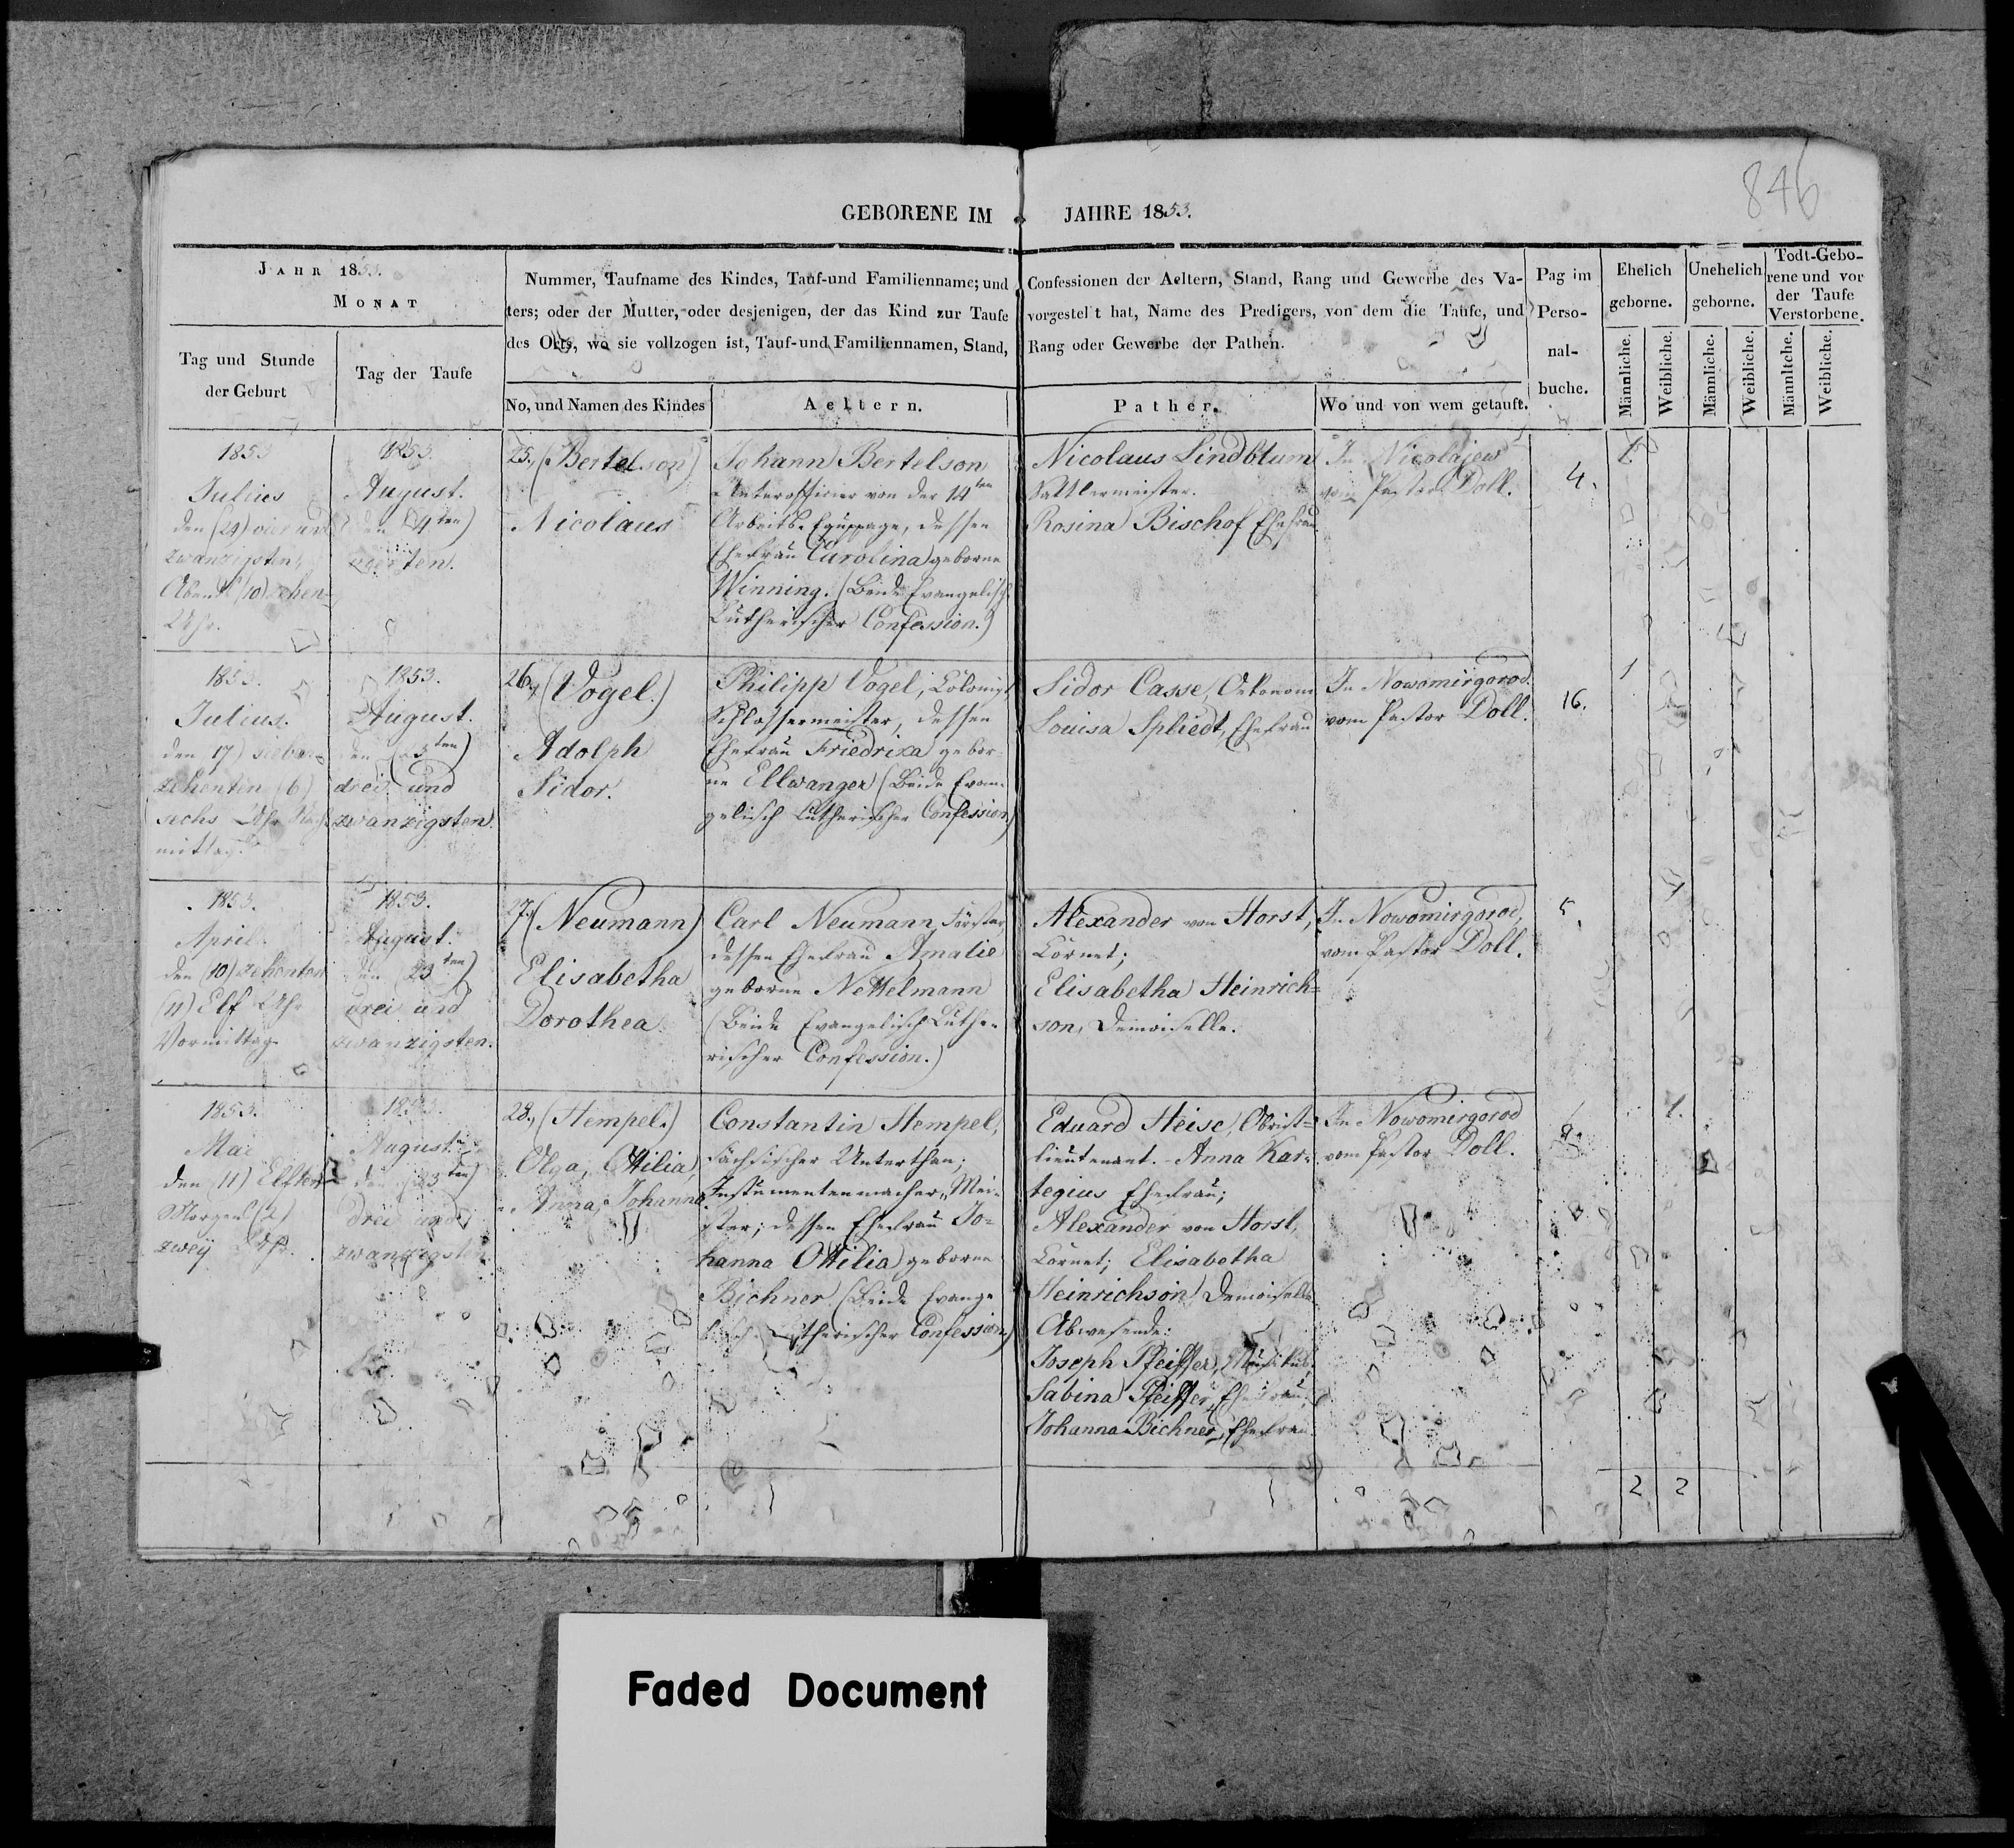 846
GEBORENE IM JAHRE 1853.
JAHR 1853.
MONAT
Tag und Stunde
der Geburt
Tag der Taufe
Nummer, Taufname des Kindes, Tauf-und Familienname; und Confessionen der Aeltern, Stand, Rang und Gewerbe des Va-
ters; oder der Mutter, oder desjenigen, der das Kind zur Taufe vorgestel't hat, Name des Predigers, von dem die Taufe, und
des Orts, wo sie vollzogen ist, Tauf-und Familiennamen, Stand, Rang oder Gewerbe der Pathen.
No, und Namen des Kindes
Aeltern.
Pather.
Wo und von wem getauft.
Pag im
Perso-
nal-
buche.
Ehelich
geborne.
Unehelich
geborne.
Todt-Gebo-
rene und vor
der Taufe
Verstorbene.
Männliche.
Weibliche.
Männliche.
Weibliche.
Männliche.
Weibliche.
1853
Julius
den (24) vier und
zwanzigsten,
Abends (10) zehen
Uhr.
1853.
August.
den (4ten)
vierten.
25., (Bertelson)
Nicolaus
Johann Bertelson
Unterofficier von der 14ten
Arbeits-Equppage, dessen
Ehefrau Carolina geborne
Winning. (Beide Evangelisch
Lutherischer Confession.)
Nicolaus Lindblum
Sattlermeister.
Rosina Bischof Ehefrau
In Nicolajew
vom Pastor Doll.
4.
1.
1853.
Julius.
den 17) sieben-
zehenten (6)
sechs Uhr Nach-
mittag.
1853.
August.
den (23ten)
drei und
zwanzigsten.
26., (Vogel.)
Adolph
Sidor.
Philipp Vogel, Colonist
Schlossermeister, dessen
Ehefrau Friedrika gebor-
ne Ellwanger (Beide Evan-
gelisch Lutherischer Confession)
Sidor Casse, Oekonom
Louisa Spliedt, Ehefrau
In Nowomirgorod.
vom Pastor Doll.
16.
1
1853.
April.
den (10) zehenten
(11) Elf Uhr
Vormittag
1853.
August.
den (23ten)
drei und
zwanzigsten.
27., (Neumann)
Elisabetha
Dorothea
Carl Neumann, Förster
dessen Ehefrau Amalie
geborne Nettelmann
(Beide Evangelisch Luthe-
rischer Confession.)
Alexander von Horst,
Cornet;
Elisabetha Heinrich-
son, Demoiselle.
In Nowomirgorod,
vom Pastor Doll.
5.
1
1853.
Mai
den (11) Elften
Morgens (2)
zweÿ Uhr.
1853.
August.
den (23ten)
drei und
zwanzigsten.
28., (Hempel.)
Olga, Ottilia,
Anna, Johanna
Constantin Hempel,
Sächsischer Unterthan;
Instumentenmacher, Mei-
ster; dessen Ehefrau Jo-
hanna Ottilia geborne
Bichner (Beide Evange
lisch Lutherischer Confession)
Eduard Heise, Obrist-
lieutenant. Anna Kar-
tegius Ehefrau;
Alexander von Horst,
Cornet; Elisabetha
Heinrichson Demoiselle
Abwesende:
Joseph Pfeiffer, Musikus
Sabina Pfeiffer, Ehefrau
Johanna Bichner, Ehefrau
In Nowomirgorod
vom Pastor Doll.
1.
2 2
Faded Document